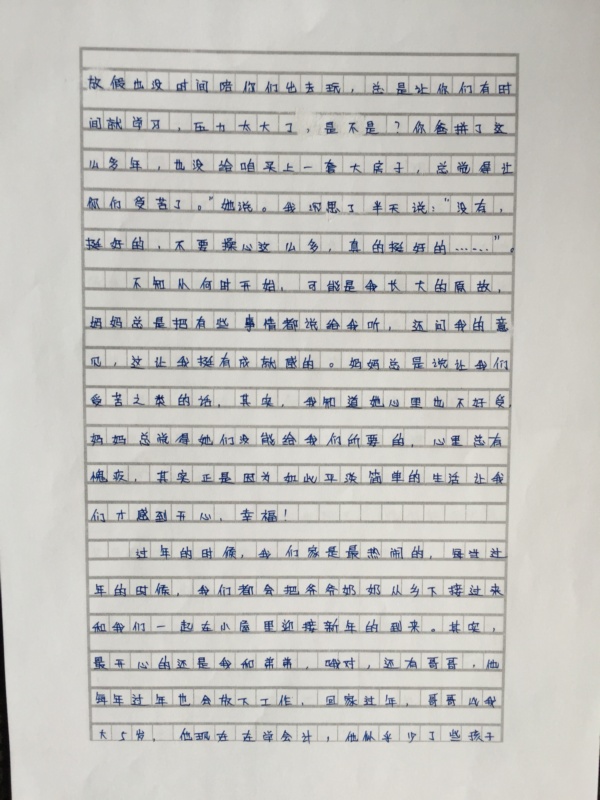 放假也没时间陪你们出去玩，总是让你们有时
间就学习，压力太大了，是不是？你爸拼了这
么多年，也没给咱买上一套大房子，总觉得让
你们受苦了。"她说。我沉思了半天说："没有，
挺好的，不要操心这么多，真的挺好的……"。
不知从何时开始，可能是我长大的原故，
妈妈总是把有些事情都说给我听，还问我的意
见，这让我挺有成就感的。妈妈总是说让我们
受苦之类的话，其实，我知道她心里也不好受，
妈妈总觉得她们没能给我们所要的，心里总有
愧疚，其实正是因为如此平淡简单的生活让我
们才感到开心，幸福！
过年的时候，我们家是最热闹的，每逢过
年的时候，我们都会把爷爷奶奶从乡下接过来
和我们一起在小屋里迎接新年的到来。其实，
最开心的还是我和弟弟，哦对，还有哥哥，他
每年过年也会放下工作，回家过年，哥哥比我
大5岁，他现在在学会计，他似乎少了些孩子